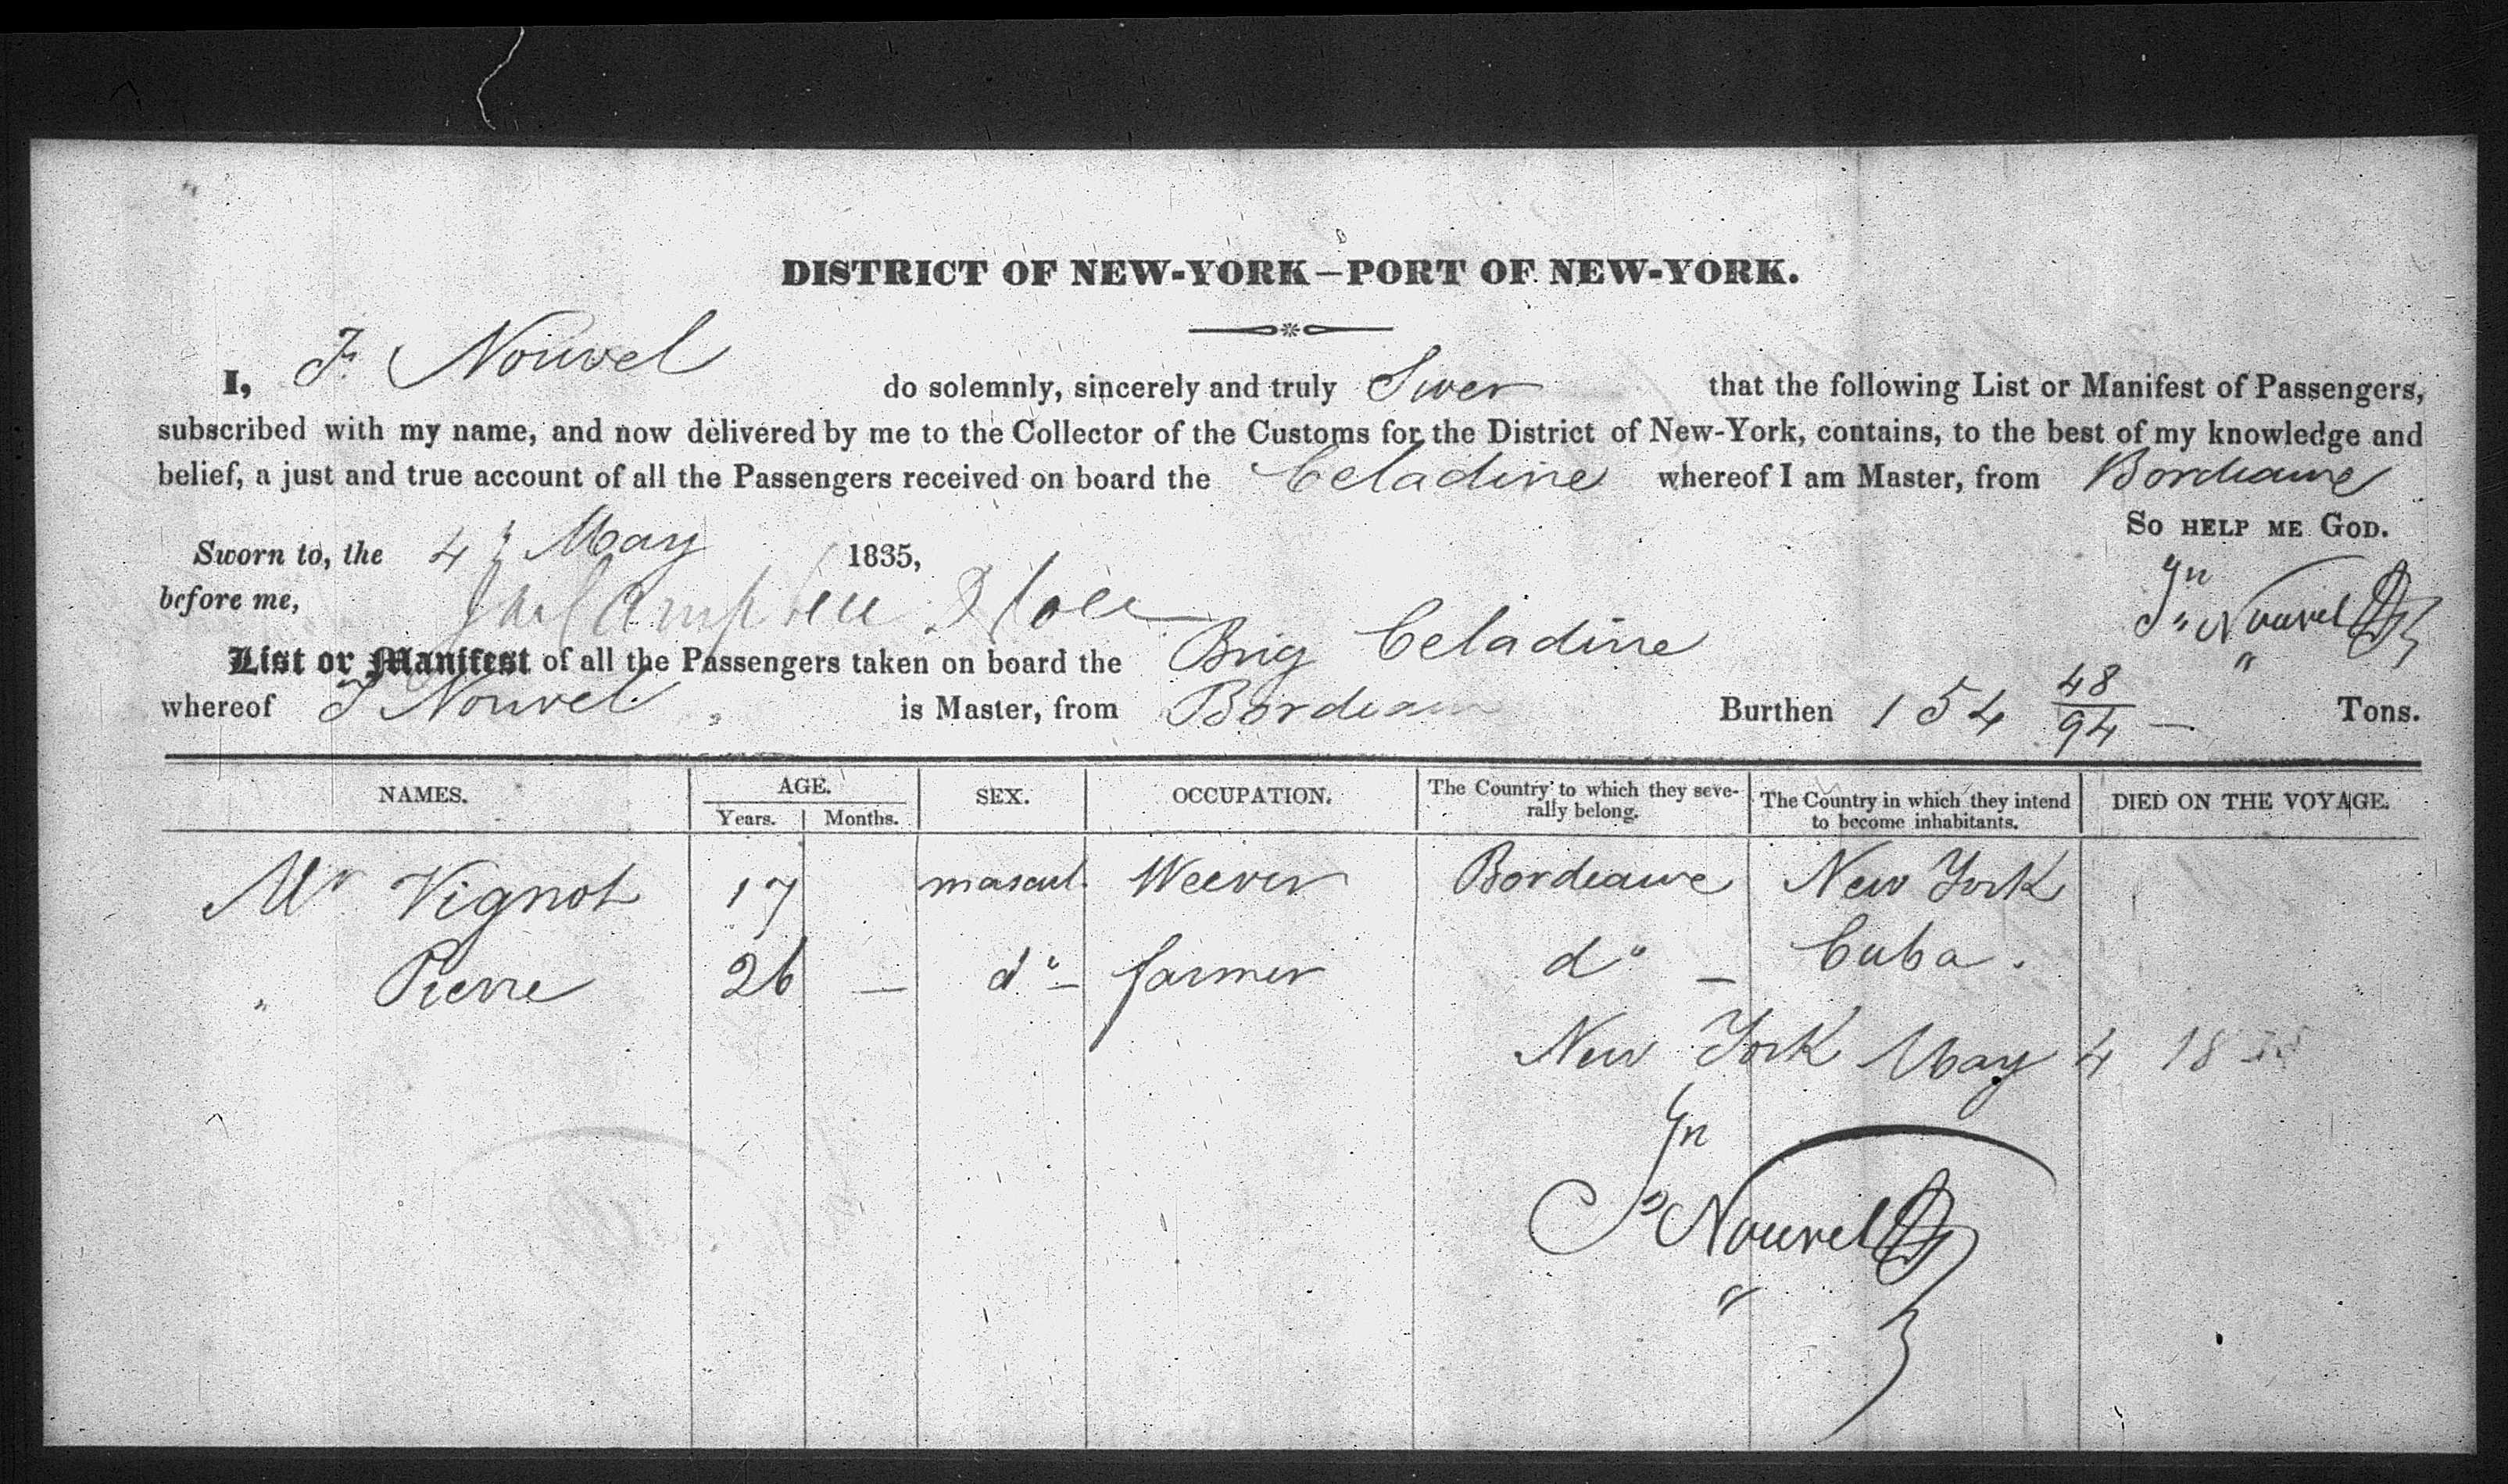 DISTRICT OF NEW-YORK—PORT OF NEW-YORK.
I, F. Nouvel do solemnly, sincerely and truly Swer that the following List or Manifest of Passengers,
subscribed with my name, and now delivered by me to the Collector of the Customs for the District of New-York, contains, to the best of my knowledge and
belief, a just and true account of all the Passengers received on board the Celadine whereof I am Master, from Bordeaux
So HELP ME GOD.
Sworn to, the 4 May 1835,
before me,
Nouvel
List or Manifest of all the Passengers taken on board the Brig Celadine
whereof F Nouvel is Master, from Bordeaux Burthen 154 48/94 Tons.
NAMES. AGE. SEX. OCCUPATION. The Country to which they seve-rally belong. The Country in which they intend to become inhabitants. DIED ON THE VOYAGE.
Years. Months.
Mr Vignot 17 mascul. Weever Bordeaux New York
" Pierre 26 — do — farmer do — Cuba.
New York May 4 1835
Nouvel